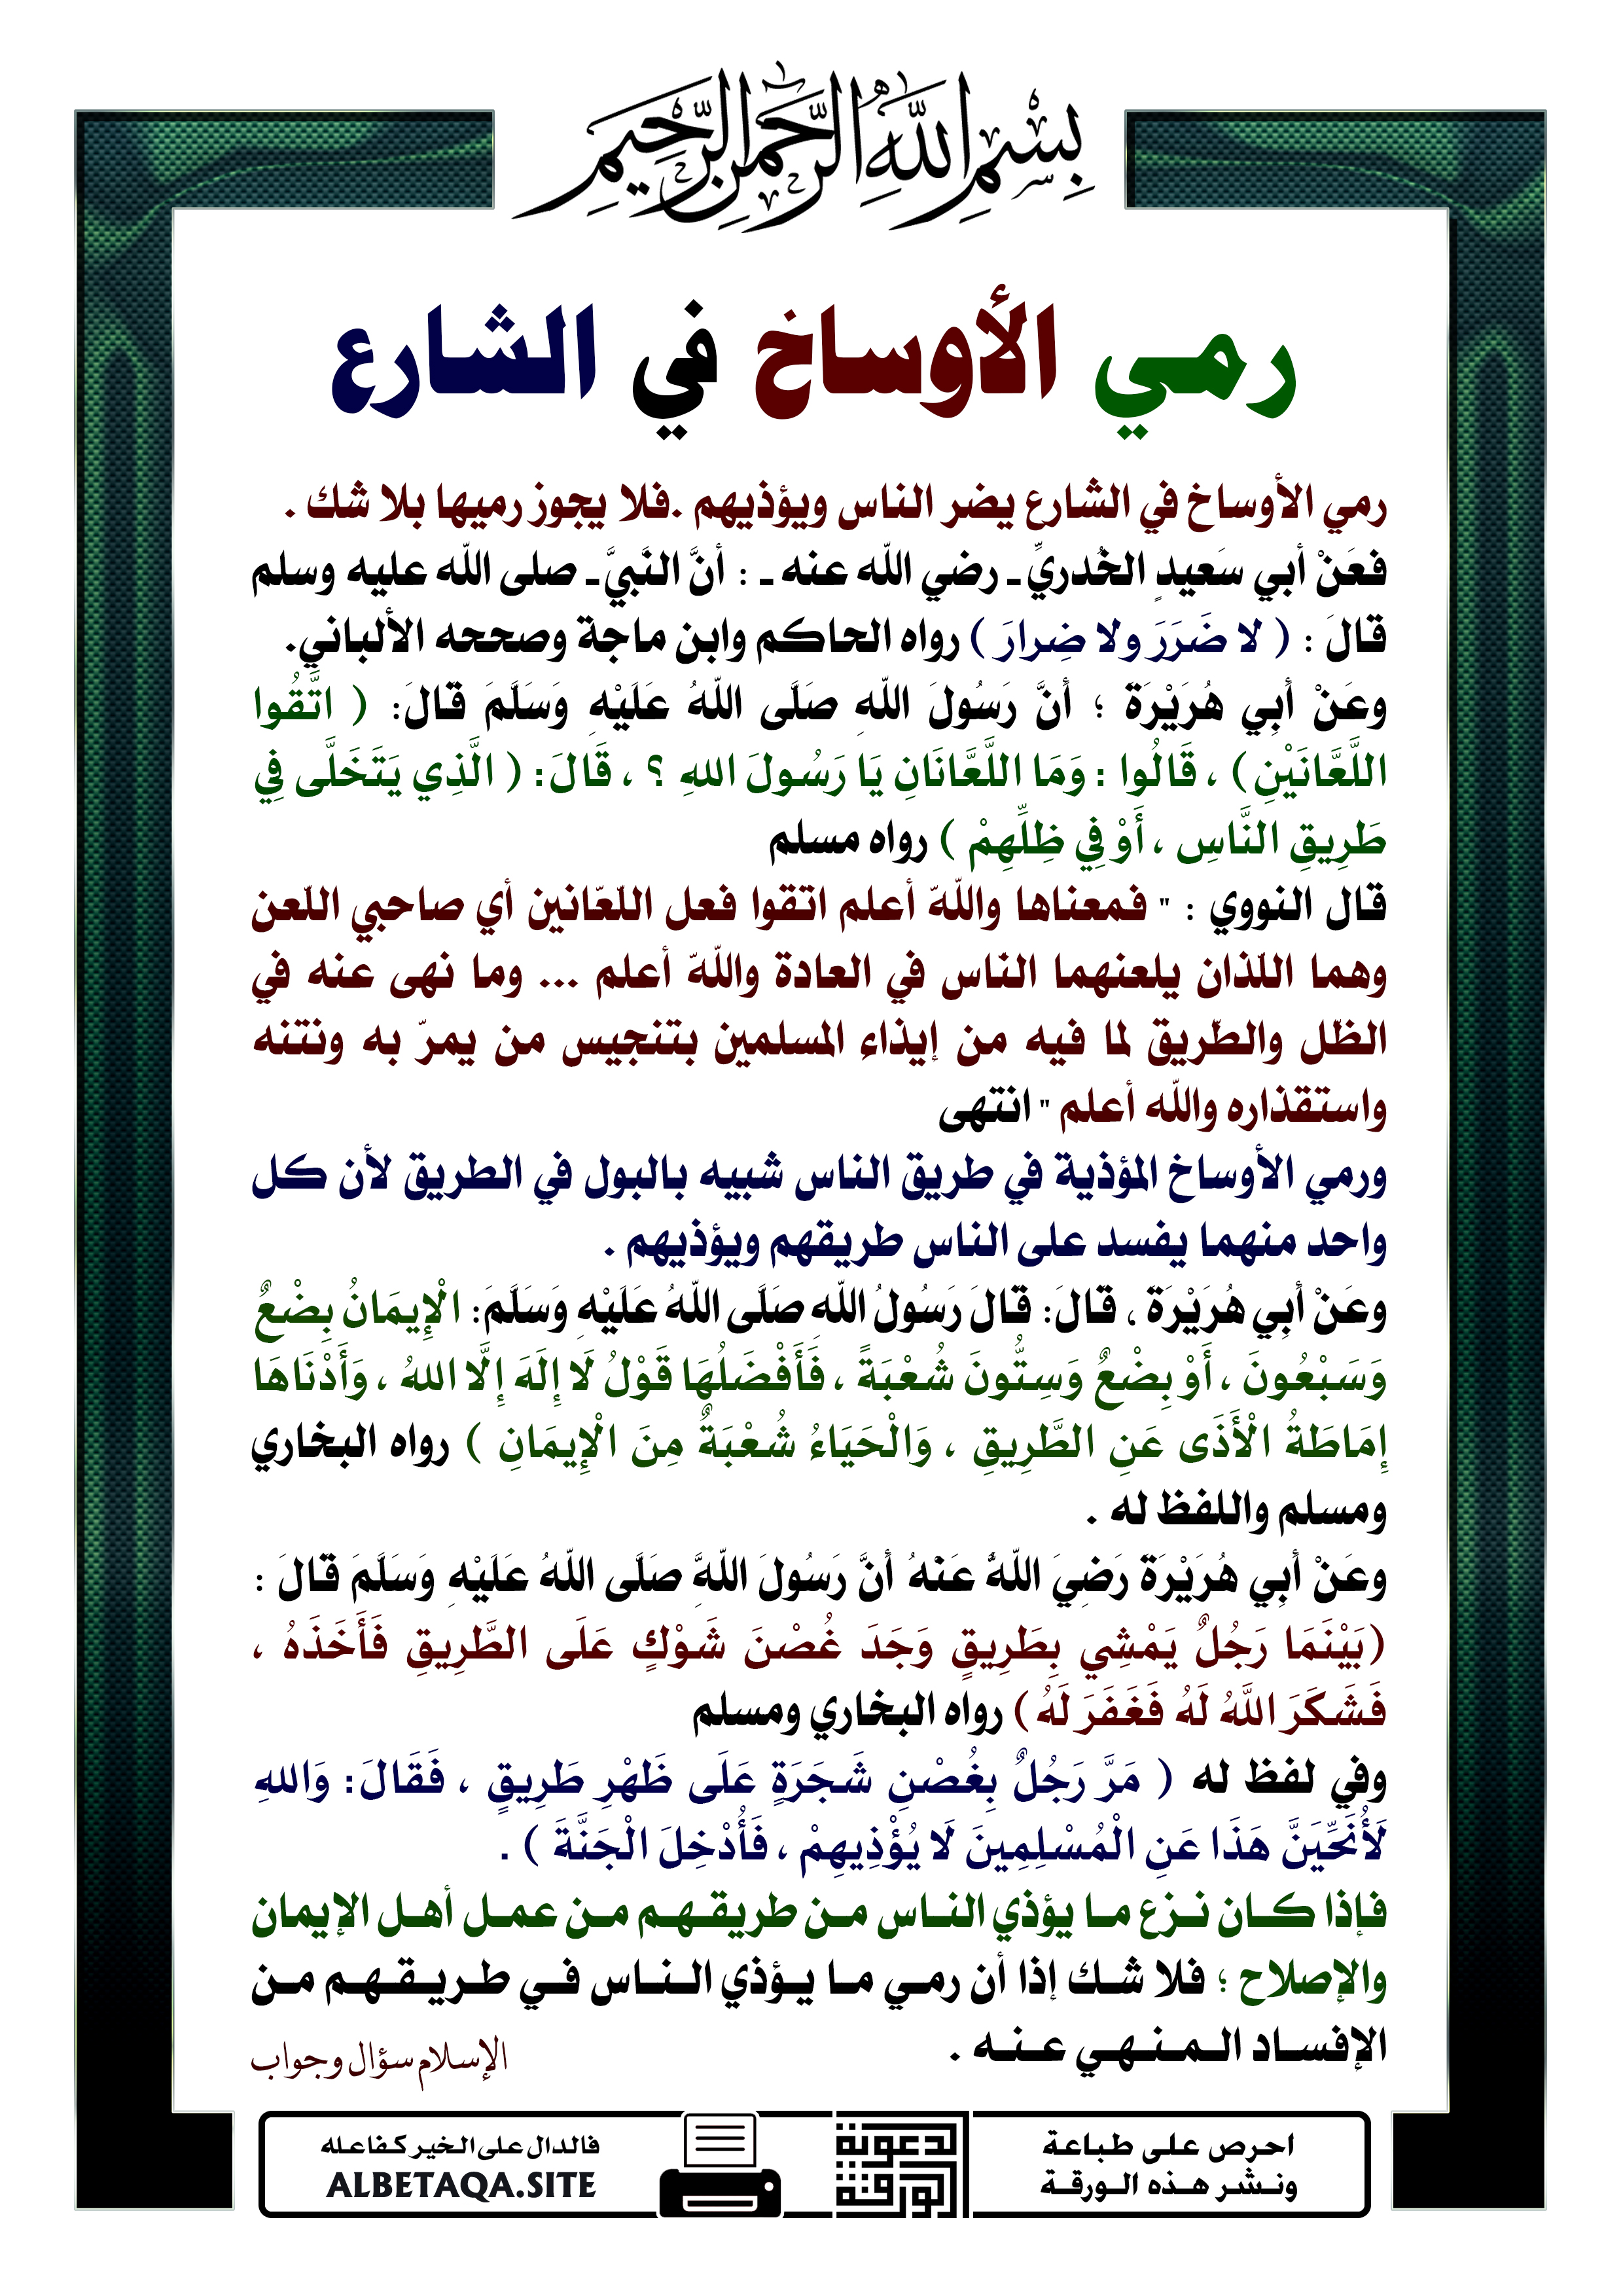 بِسْمِ اللَّهِ الرَّحْمَٰنِ الرَّحِيمِ
رمي الأوساخ في الشارع
رمي الأوساخ في الشارع يضر الناس ويؤذيهم .فلا يجوز رميها بلا شك .
فعَنْ أبي سَعيدٍ الخُدريِّ ـ رضي الله عنه ـ : أنَّ النَّبيَّ ـ صلى الله عليه وسلم
قالَ : ( لا ضَرَرَ ولا ضِرارَ ) رواه الحاكم وابن ماجة وصححه الألباني.
وعَنْ أَبِي هُرَيْرَةَ ؛ أَنَّ رَسُولَ اللهِ صَلَّى اللهُ عَلَيْهِ وَسَلَّمَ قالَ: ( اتَّقُوا
اللَّعَّانَيْنِ) ، قَالُوا : وَمَا اللَّعَّانَانِ يَا رَسُولَ اللهِ ؟ ، قَالَ: ( الَّذِي يَتَخَلَّى فِي
طَرِيقِ النَّاسِ ، أَوْ فِي ظِلِّهِمْ ) رواه مسلم
قال النووي : " فمعناها والله أعلم اتقوا فعل اللّعّانين أي صاحبي اللّعن
وهما اللّذان يلعنهما الناس في العادة والله أعلم ... وما نهى عنه في
الظّل والطّريق لما فيه من إيذاء المسلمين بتنجيس من يمرّ به ونتنه
واستقذاره والله أعلم " انتهى
ورمي الأوساخ المؤذية في طريق الناس شبيه بالبول في الطريق لأن كل
واحد منهما يفسد على الناس طريقهم ويؤذيهم .
وعَنْ أَبِي هُرَيْرَةَ ، قالَ: قالَ رَسُولُ اللهِ صَلَّى اللهُ عَلَيْهِ وَسَلَّمَ: الْإِيمَانُ بِضْعٌ
وَسَبْعُونَ ، أَوْ بِضْعٌ وَسِتُّونَ شُعْبَةً ، فَأَفْضَلُهَا قَوْلُ لَا إِلَهَ إِلَّا اللهُ ، وَأَدْنَاهَا
إِمَاطَةُ الْأَذَى عَنِ الطَّرِيقِ ، وَالْحَيَاءُ شُعْبَةٌ مِنَ الْإِيمَانِ ) رواه البخاري
ومسلم واللفظ له .
وعَنْ أَبِي هُرَيْرَةَ رَضِيَ اللهُ عَنْهُ أَنَّ رَسُولَ اللهِ صَلَّى اللهُ عَلَيْهِ وَسَلَّمَ قالَ :
(بَيْنَمَا رَجُلٌ يَمْشِي بِطَرِيقٍ وَجَدَ غُصْنَ شَوْكٍ عَلَى الطَّرِيقِ فَأَخَذَهُ ،
فَشَكَرَ اللَّهُ لَهُ فَغَفَرَ لَهُ) رواه البخاري ومسلم
وفي لفظ له ( مَرَّ رَجُلٌ بِغُصْنِ شَجَرَةٍ عَلَى ظَهْرِ طَرِيقٍ ، فَقَالَ: وَاللهِ
لَأُنَحِّيَنَّ هَذَا عَنِ الْمُسْلِمِينَ لَا يُؤْذِيهِمْ ، فَأُدْخِلَ الْجَنَّةَ ) .
فإذا كان نزع ما يؤذي الناس من طريقهم من عمل أهل الإيمان
والإصلاح ؛ فلا شك إذا أن رمي ما يؤذي الناس في طريقهم من
الإفساد المنهي عنه .
الإسلام سؤال وجواب
احرص على طباعة
ونشر هذه الورقة
الورقة
الدعوية
فالدال على الخير كفاعله
ALBETAQA.SITE